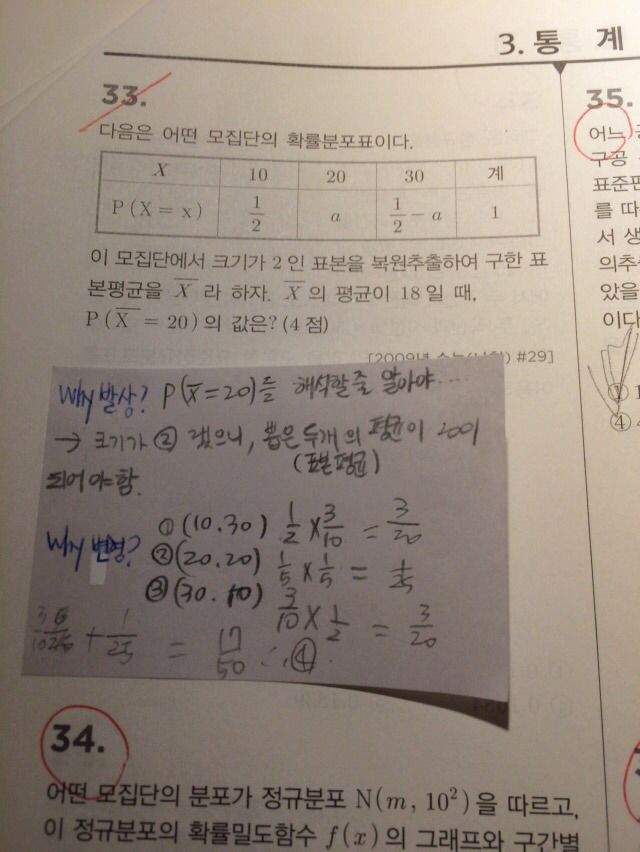 3. 통 계
33.
다음은 어떤 모집단의 확률분포표이다.
X 10 20 30 계
P(X=x) 1/2 a 1/2-a 1
이 모집단에서 크기가 2인 표본을 복원추출하여 구한 표
본평균을 X̅ 라 하자. X̅ 의 평균이 18일 때,
P(X̅=20)의 값은? (4점)
#29]
Why 발상? P(X̅=20)를 해석할줄 알아야....
→ 크기가 ② 랬으니, 뽑은 두개의 평균이 20이
(표본평균)
되어야함.
Why 변형? ① (10.30) 1/2 × 3/10 = 3/20
② (20.20) 1/5 × 1/5 = 1/25
③ (30.10) 3/10 × 1/2 = 3/20
+ 1/25 = 17/50 ∴ ④
34.
어떤 모집단의 분포가 정규분포 N(m, 10²)을 따르고,
이 정규분포의 확률밀도함수 f(x)의 그래프와 구간별
35.
어느
구공
표준편
를 따
서 생
의추
았을
이다
① 1
④